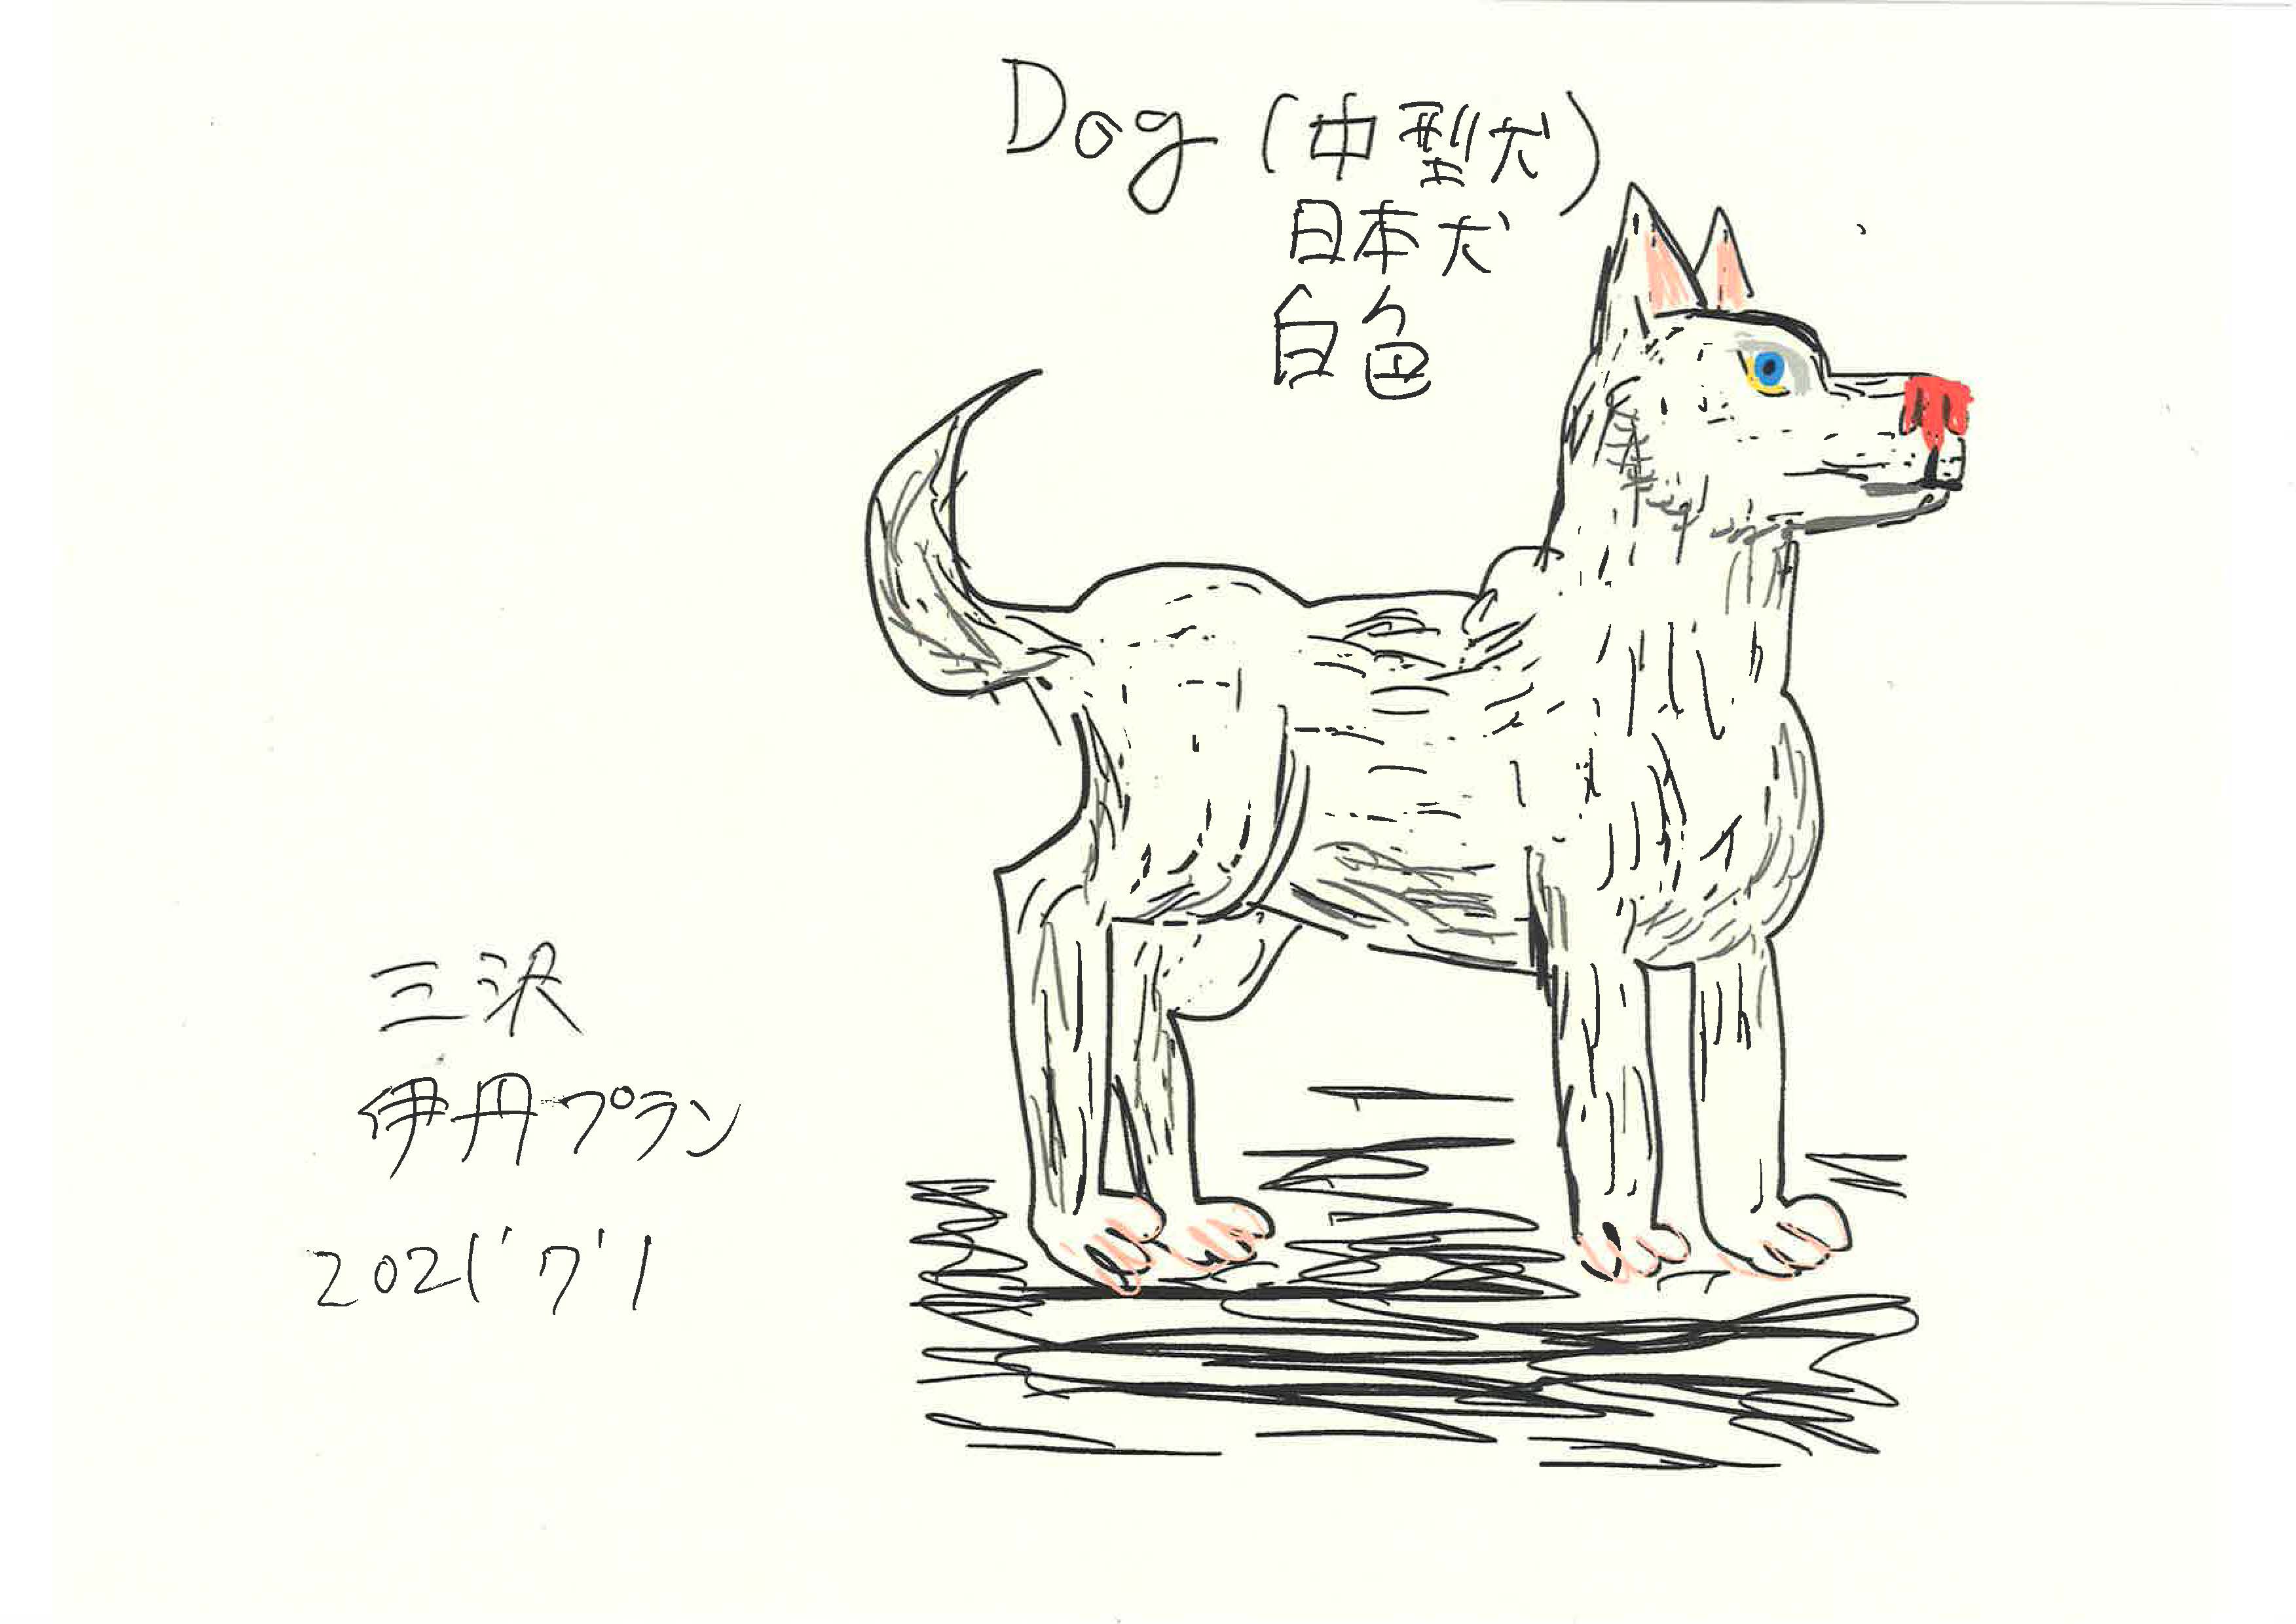 Dog (中型犬)
日本犬
白色
三沢
伊丹プラン
2021'7'1